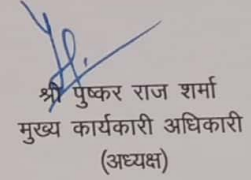 श्री पुष्कर राज शर्मा
मुख्य कार्यकारी अधिकारी
(अध्यक्ष)